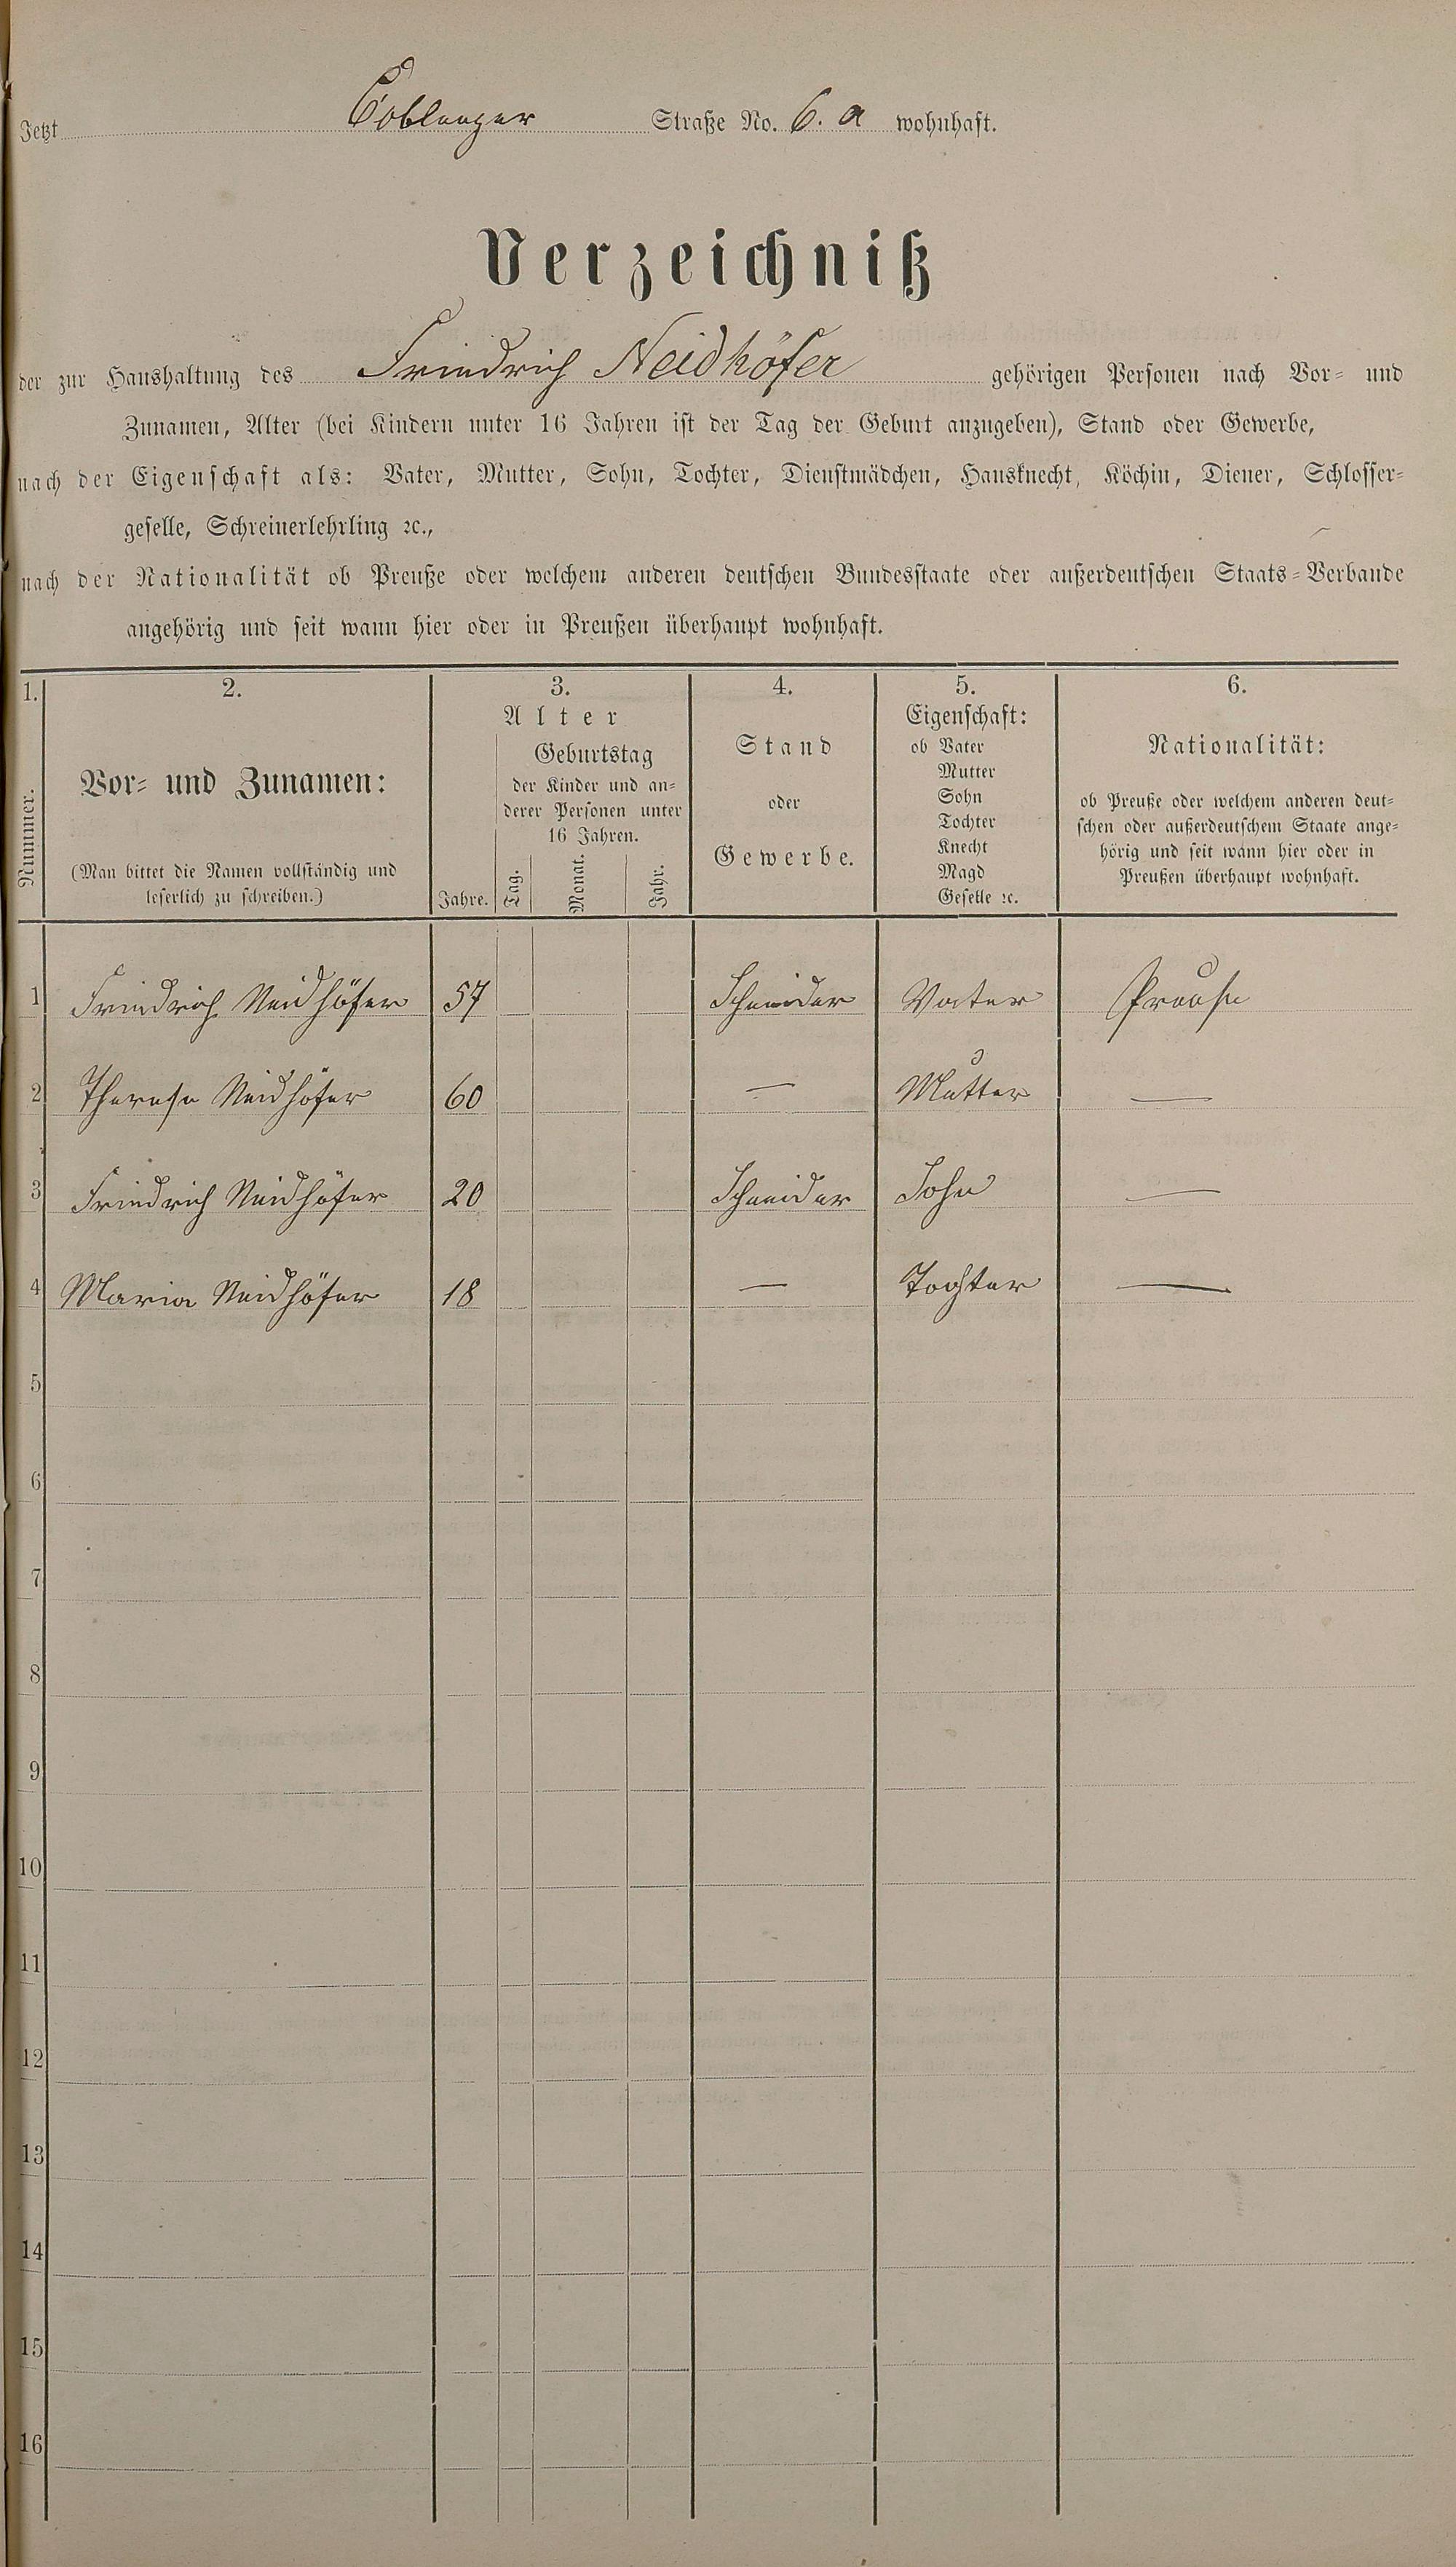 Jetzt Coblenzer Straße No. 6. a wohnhaft.
Verzeichniß
der zur Haushaltung des Friedrich Neidhöfer gehörigen Personen nach Vor- und
Zunamen, Alter (bei Kindern unter 16 Jahren ist der Tag der Geburt anzugeben), Stand oder Gewerbe,
nach der Eigenschaft als: Vater, Mutter, Sohn, Tochter, Dienstmädchen, Hausknecht, Köchin, Diener, Schlosser-
geselle, Schreinerlehrling ꝛc.,
nach der Nationalität ob Preuße oder welchem anderen deutschen Bundesstaate oder außerdeutschen Staats-Verbande
angehörig und seit wann hier oder in Preußen überhaupt wohnhaft.
1.
Nummer.
2.
Vor- und Zunamen:
(Man bittet die Namen vollständig und
leserlich zu schreiben.)
3.
Alter
Jahre.
Geburtstag
der Kinder und an-
derer Personen unter
16 Jahren.
Tag. Monat. Jahr.
4.
Stand
oder
Gewerbe.
5.
Eigenschaft:
ob Vater
Mutter
Sohn
Tochter
Knecht
Magd
Geselle ꝛc.
6.
Nationalität:
ob Preuße oder welchem anderen deut-
schen oder außerdeutschem Staate ange-
hörig und seit wann hier oder in
Preußen überhaupt wohnhaft.
1 Friedrich Neidhöfer 57 Schneider Vater Preuße
2 Therese Neidhöfer 60 — Mutter —
3 Friedrich Neidhöfer 20 Schneider Sohn —
4 Maria Neidhöfer 18 — Tochter —
5
6
7
8
9
10
11
12
13
14
15
16